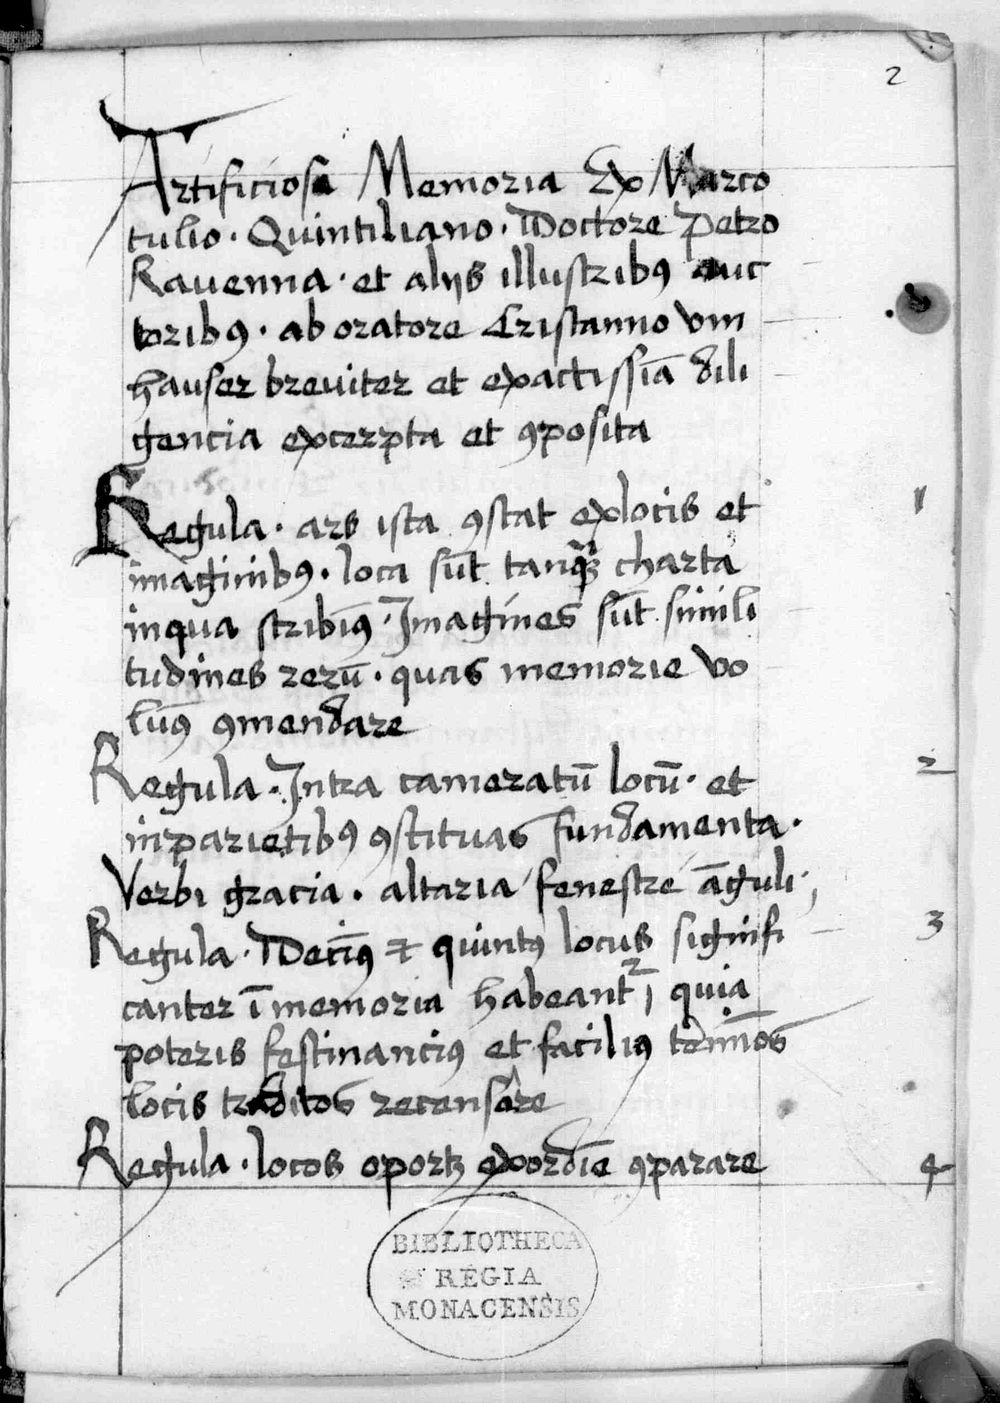 2
Artificiosa Memoria Ex Marco
tulio. Quintiliano. Doctore Petro
Ravenna. et alijs illustribꝰ auc
toribꝰ. ab oratore Cristanno vm
hauser breviter et exactissīa dili
gencia excerpta et ꝯposita
Regula. ars ista ꝯstat ex locis et 1
imaginibꝰ. loca sūt tanqꝫ charta
in qua stribīꝰ. Imagines sūt simili
tudines rerū. quas memorie vo
lūꝰ ꝯmendare
Regula. Intra cameratū locū. et 2
in parietibꝰ ꝯstituas fundamenta.
Verbi gracia. altaria fenestre āguli.
Regula. Decīꝰ ⁊ quintꝰ locus signifi 3
canter ī memoria habeant², quia
poteris festinanciꝰ et faciliꝰ termīos
locis traditos recensere
Regula. locos oportꝫ ex ordīe ꝯparare 4
BIBLIOTHECA
REGIA
MONACENSIS